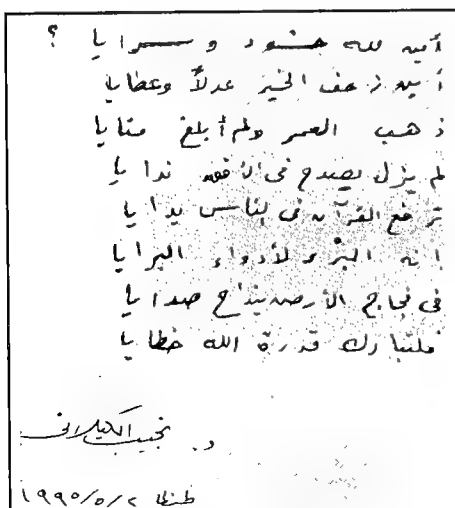 أين لله حشود وسرايا ؟
أين زحف الخير عدلاً وعطايا
ذهب العمر ولم أبلغ منايا
لم يزل يصدح فى الأفق ندايا
ترفع القرآن فى الناس يدايا
انه البرء لأدواء البرايا
فى فجاج الأرض ينداح صدايا
فلتبارك قدرة الله خطايا
د. نجيب الكيلانى
طنطا ١٩٩٥/٥/٢